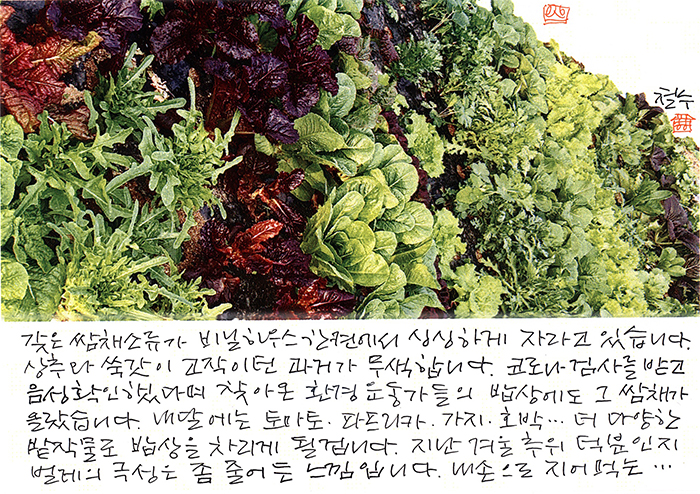 철수
갖은 쌈채소류가 비닐하우스 한편에서 싱싱하게 자라고 있습니다.
상추나 쑥갓이 고작이던 과거가 무색합니다. 코로나 검사를 받고
음성확인했다며 찾아온 환경운동가들의 밥상에도 그 쌈채가
올랐습니다. 내달에는 토마토·파프리카·가지·호박… 더 다양한
밭작물로 밥상을 차리게 될겁니다. 지난 겨울 추위 덕분인지
벌레의 극성은 좀 줄어든 느낌입니다. 내손으로 지어먹는…